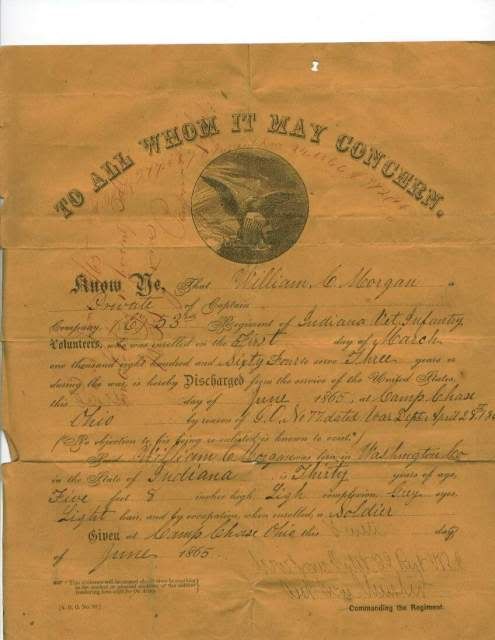 TO ALL WHOM IT MAY CONCERN.
Know Ye, That William C Morgan a
Private of Captain
Company, 53rd Regiment of Indiana Vet Infantry
Volunteers, who was enrolled on the First day of March
one thousand eight hundred and Sixty Four to serve Three years or
during the war, is hereby Discharged from the service of the United States,
this day of June 1865, at Camp Chase
Ohio by reason of G.O. No 77 dated War Dept April 28th
(No objection to his being re-enlisted is known to exist.)
Said William C Morgan was born in Washington Co
in the State of Indiana is Thirty years of age,
Five feet 8 inches high, Ligh complexion, eyes,
Light hair, and by occupation, when enrolled, a Soldier
Given at Camp Chase Ohio this day
of June 1865.
Commanding the Regiment.